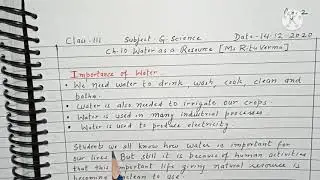 P.g: 2
Class-III Subject G. Science Date-14-12-2020
Ch-10 Water as a Resource [Ms Ritu Verma]
Importance of Water
• We need water to drink, wash, cook, clean and
bathe.
• Water is also needed to irrigate our crops.
• Water is used in many industrial processes.
• Water is used to produce electricity.
Students we all know how water is important for
our lives. But still it is because of human activities
that this important life giving natural resource is
becoming unclean to use.